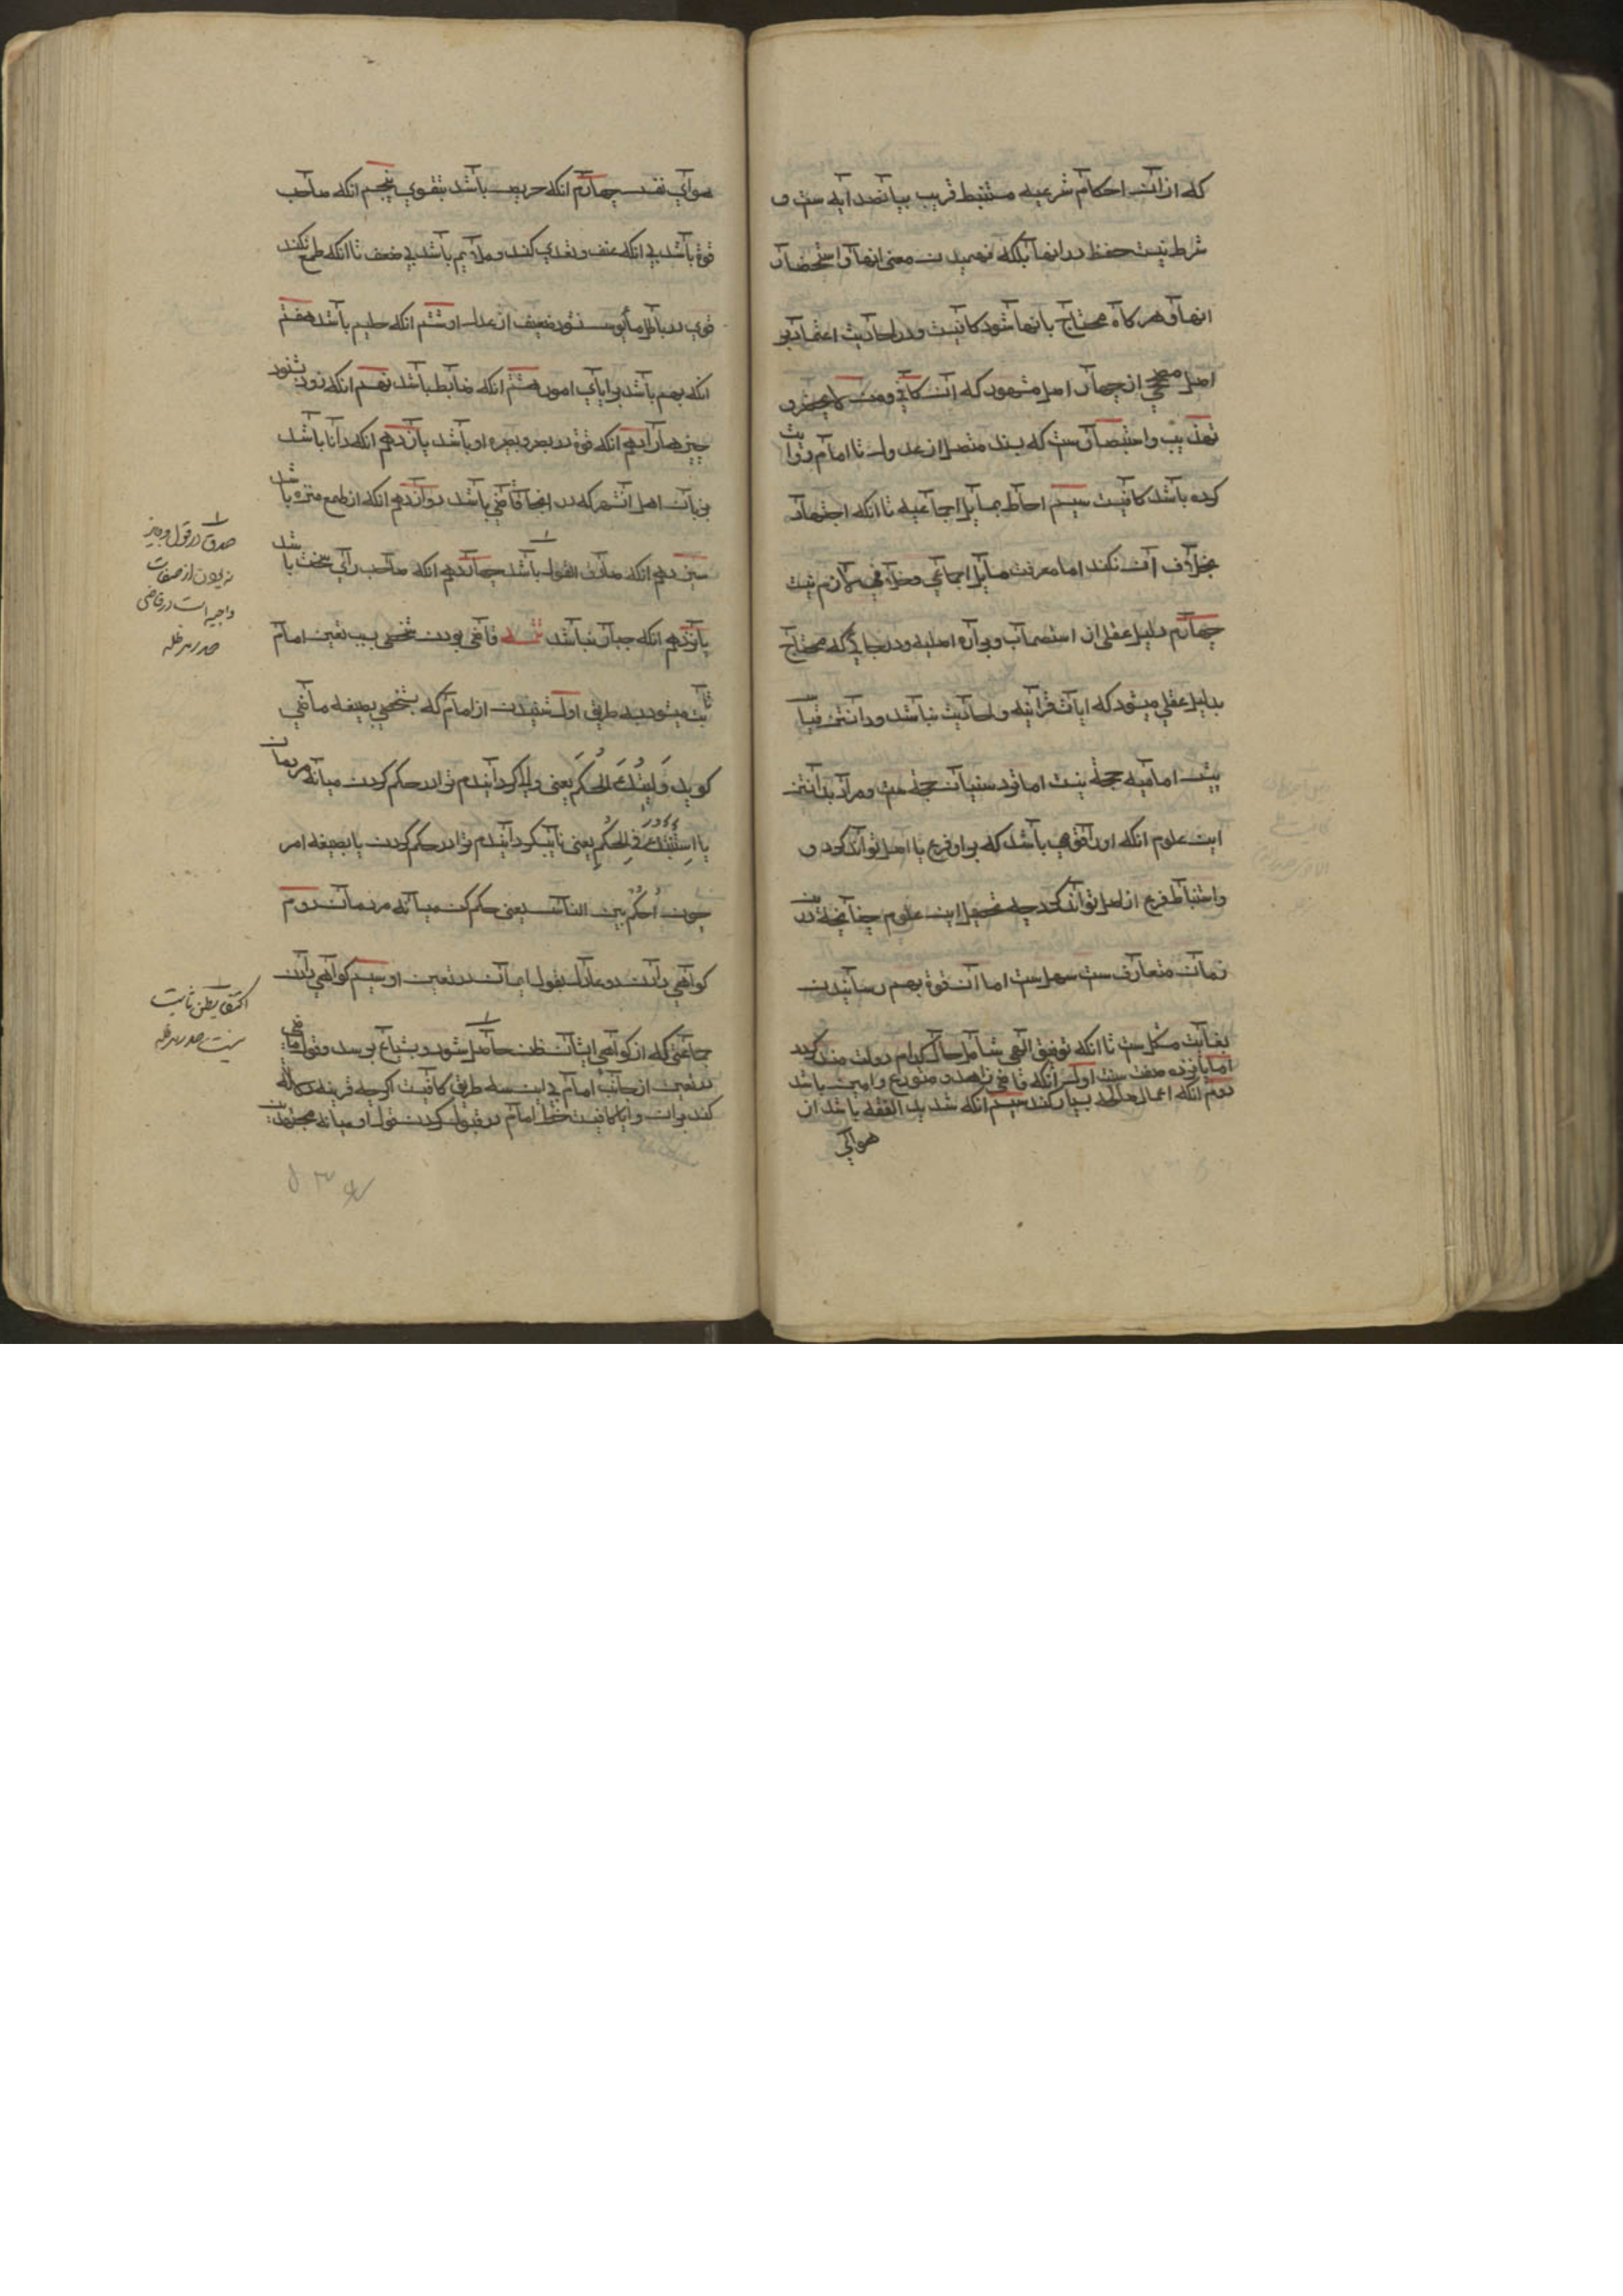 که ازان احکام شرعیه مستنبط قریب بپانصد ایه ست و
شرط نیست حفظ در انها بلکه فهمیدن معنی انها و استحضار
انها و هر کاه محتاج بانها شود کافیست و در احادیث اعتماد بر
اصل مصحح از چهار اصل مشهور که آن کافی و من لا یحضر و
تهذیب و استبصار ست که بسند متصل از عدول تا امام روایت
کرده باشد کافیست سیم احاطه بمسایل اجماعیه تا انکه اجتهاد
بخلاف آن نکند اما معرفت مسایل اجماعی و خلافی لازم نیست
چهارم دلیل عقلی از استصحاب و براءه اصلیه و در جایی که محتاج
بدلیل عقلی میشود که ایات قرانیه و احادیث نباشد و دانستن قیاس
پیش امامیه حجة نیست اما نزد سنیان حجة ست و مراد بدانستن
این علوم انکه او را قوتی باشد که بر او فرع با اصل تواند کرد و
واستنباط فرع از اصل تواند کرد چه تحصیل این علوم چنانچه درین
زمان متعارف ست سهل ست اما آن قوة بهم رسانیدن
بغایت مشکل ست تا انکه توفیق الهی شامل حال کدام دولت مند کردد
اما پانزده صفت سنت اول انکه قاضی زاهد و متورع و امین باشد
دوم انکه اعمال صالحه بسیار کند سیم انکه شدید الفقه باشد از
هوای
هوای نفس چهارم انکه حریص باشد بتقوی پنجم انکه صاحب
قوة باشد بی انکه عنف و تعدی کند و ملایم باشد بی ضعف تا انکه طمع نکند
قوی در باطل و مأیوس نشود ضعیف از عدل او ششم انکه حلیم باشد هفتم
انکه بهم باشد برایای امور هشتم انکه ضابط باشد نهم انکه زود شنود
چیزها را دهم انکه قوة در بصر و بصیره او باشد یازدهم انکه دانا باشد
بزبان اهل آن شهر که در انجا قاضی باشد دوازدهم انکه از طمع منزه باشد
سیزدهم انکه صادق القول باشد چهاردهم انکه صاحب رای سخت باشد
پانزدهم انکه جبار نباشد قاضی بودن شخصی بسبب تعیین امام
ثابت میشود بسه طریق اول شنیدن از امام که بشخصی بصیغه ماضی
کوید وَلَّیتُکَ الحُکمَ یعنی والی کردانیدم ترا در حکم کردن میانه مردمان
یا اِستَنَبتُکَ فی الحُکمِ یعنی نایب کردانیدم ترا در حکم کردن یا بصیغه امر
چون اُحکُم بین الناس یعنی حکم کن میانه مردمان دوم
کواهی دادن دو عادل بقول ایشان در تعیین او سیم کواهی دادن
جماعتی که از کواهی ایشان ظن حاصل شود و بشیاع برسد و قول قاضی
در تعیین از جانب امام بی این سه طریق کافی نیست اکرچه قرینه دلالت
کند بران و ایا کافیست خط امام در قبول کردن قول او میانه مجتهدین
صدق در قول و پرهیز
نربودن از صفات
واجبه است در قاضی
صدر مد ظله
اکتفا بظن ثابت
نیست صدر مد ظله